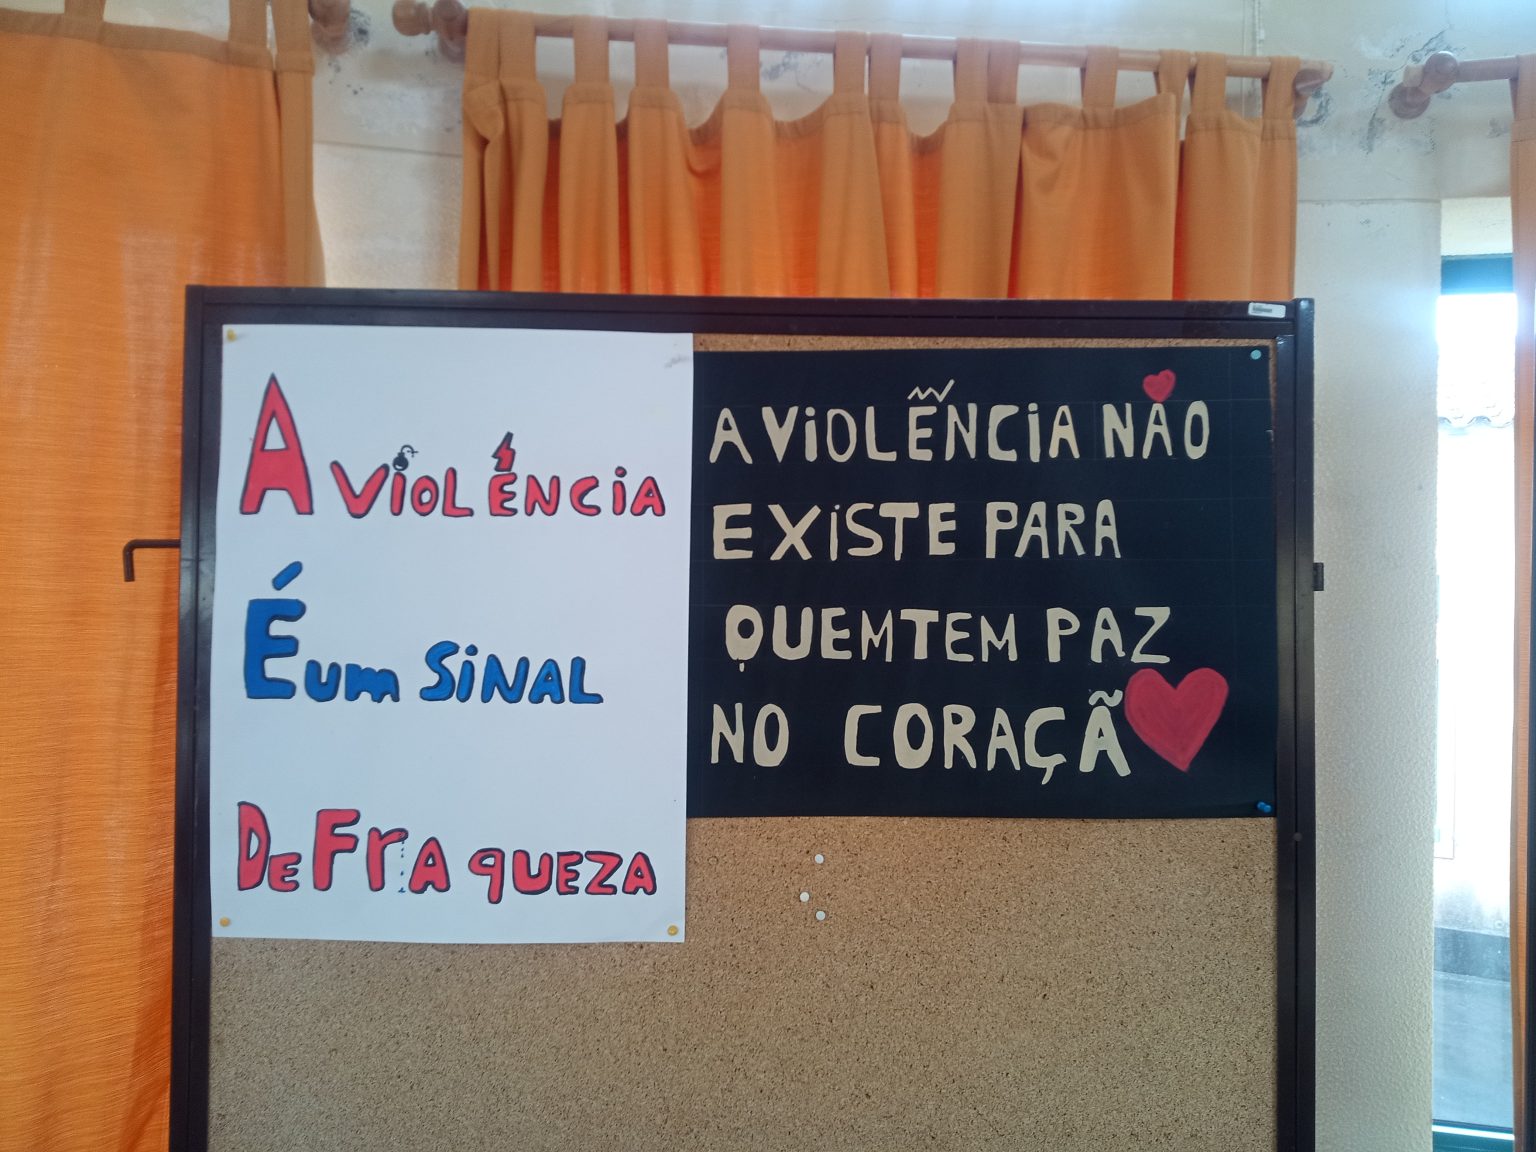 A ViOLÊNCiA
É um SiNAL
De FrAqUEZA
A ViOLÊNCiA NÃO
EXiSTE PARA
QUEM TEM PAZ
NO CORAÇÃ